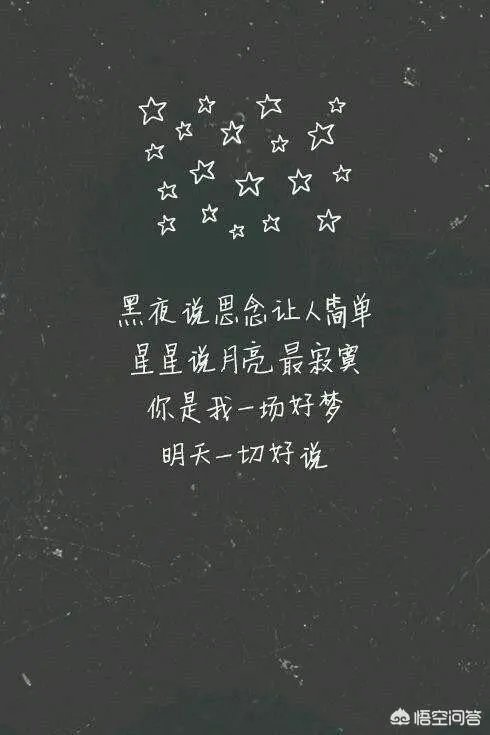 黑夜说思念让人简单
星星说月亮最寂寞
你是我一场好梦
明天一切好说
悟空问答